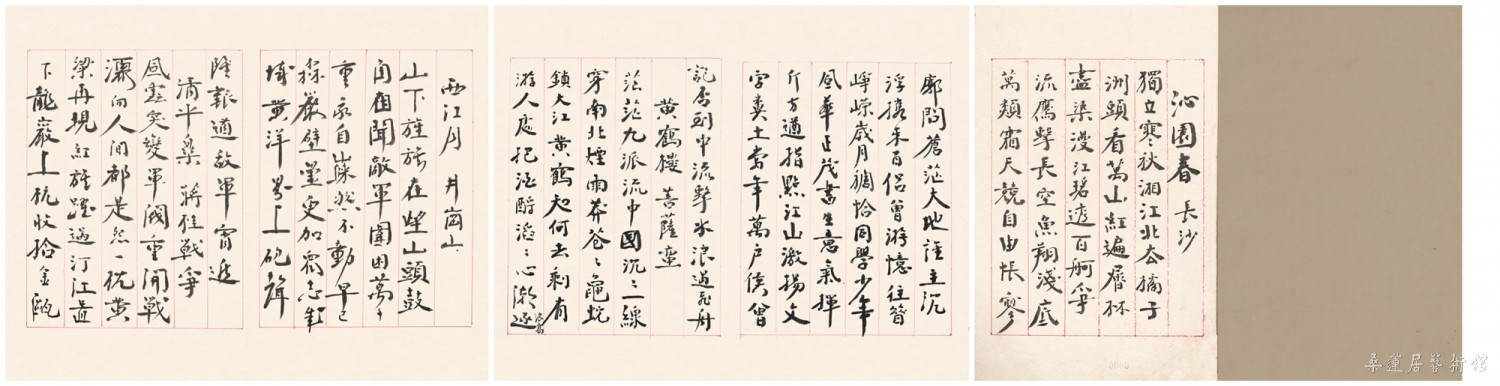 沁園春 長沙
獨立寒秋湘江北去橘子
洲頭看萬山紅遍層林
盡染漫江碧透百舸爭
流鷹擊長空魚翔淺底
萬類霜天競自由悵寥
廓問蒼茫大地誰主沉
浮攜來百侶曾游憶往昔
崢嶸歲月稠恰同學少年
風華正茂書生意氣揮
斥方遒指點江山激揚文
字糞土當年萬戶侯曾
記否到中流擊水浪遏飛舟
黃鶴樓 菩薩蠻
茫茫九派流中國沉〻一線
穿南北煙雨莽蒼〻龜蛇
鎖大江黃鶴知何去剩有
游人處把酒酹滔〻心潮逐浪高
西江月 井崗山
山下旌旗在望山頭鼓
角相聞敵軍圍困萬千
重我自巋然不動早已
森嚴壁壘更加眾志成
城黃洋界上砲聲
隆報道敵軍宵遁
清平樂 蔣桂戰爭
風雲突變軍閥重開戰
灑向人間都是怨一枕黃
粱再現紅旗躍過汀江直
下龍巖上杭收拾金甌
桑蓮居藝術館